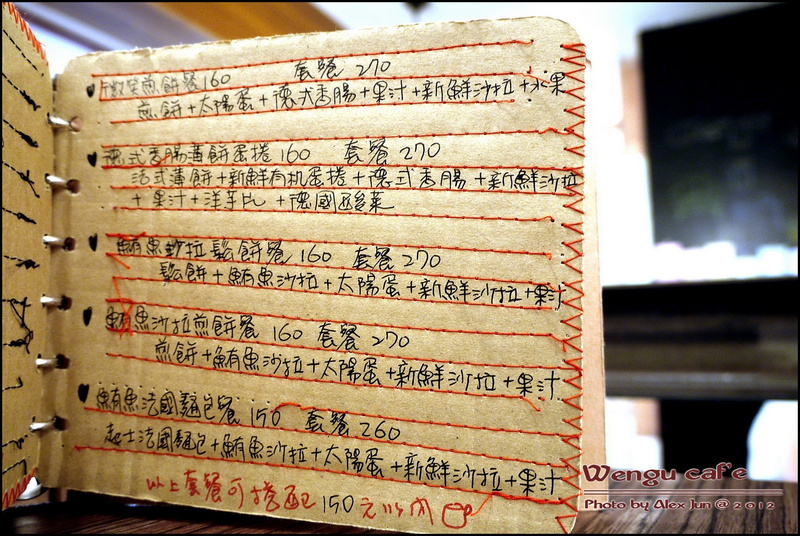 微笑煎餅餐 160 套餐 270
煎餅+太陽蛋+德式香腸+果汁+新鮮沙拉+水果
德式香腸薄餅蛋捲 160 套餐 270
法式薄餅+新鮮有机蛋捲+德式香腸+新鮮沙拉
+果汁+洋芋比+德國酸菜
鮪魚沙拉鬆餅餐 160 套餐 270
鬆餅+鮪魚沙拉+太陽蛋+新鮮沙拉+果汁
鮪魚沙拉煎餅餐 160 套餐 270
煎餅+鮪魚沙拉+太陽蛋+新鮮沙拉+果汁
鮪魚法國麵包餐 150 套餐 260
起士法國麵包+鮪魚沙拉+太陽蛋+新鮮沙拉+果汁
以上套餐可搭配150元以內
Wengu caf'e
Photo by Alex Jun @ 2012